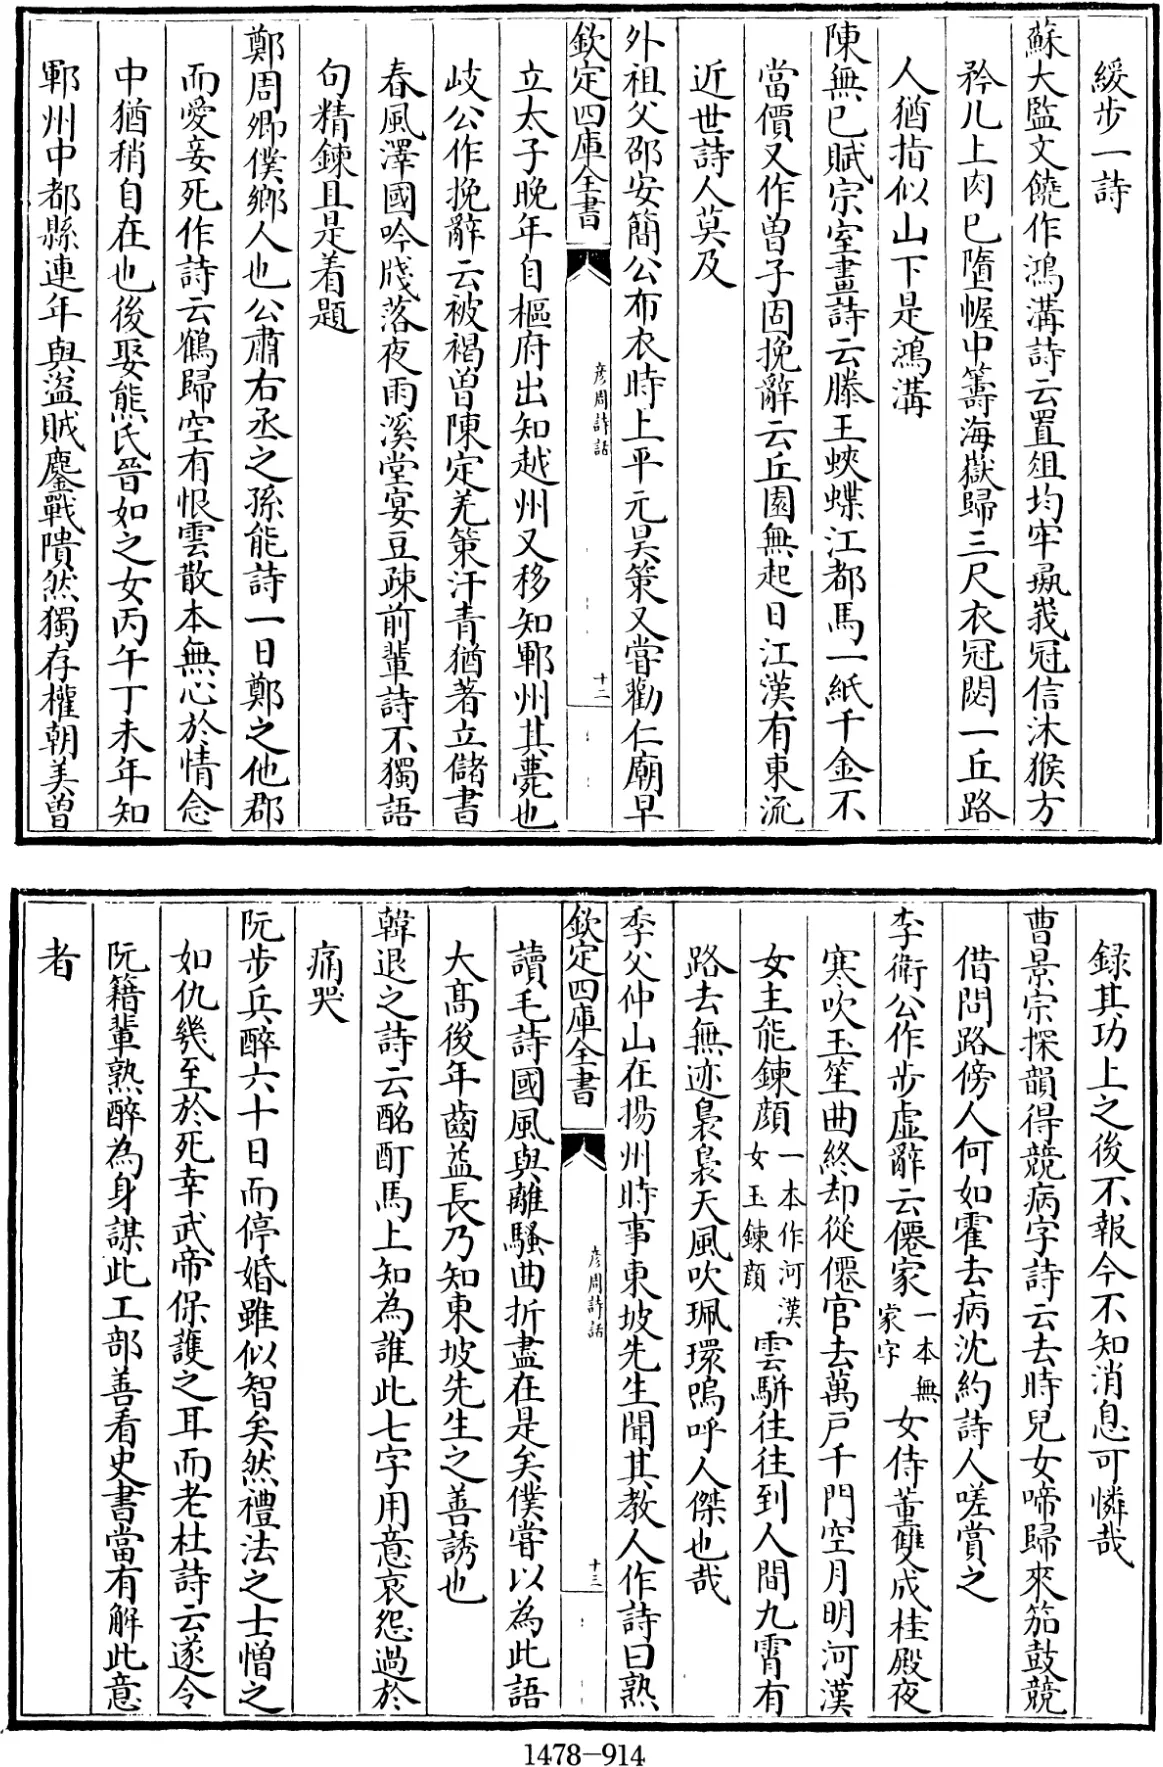 緩步一詩
蘇大監文饒作鴻溝詩云置俎均牢羸峩冠信沐猴方
矜几上肉已墮幄中籌海嶽歸三尺衣冠閟一丘路
人猶指似山下是鴻溝
陳無已賦宗室畫詩云滕王蛺蝶江都馬一紙千金不
當價又作曽子固挽辭云丘園無起日江漢有東流
近世詩人莫及
外祖父邵安簡公布衣時上平元昊策又嘗勸仁廟早
欽定四庫全書 彦周詩話 十二
立太子晚年自樞府出知越州又移知鄆州其薨也
岐公作挽辭云被褐曽陳定羌策汗青猶著立儲書
春風澤國吟牋落夜雨溪堂宴豆疎前輩詩不獨語
句精鍊且是着題
鄭周卿僕鄉人也公肅右丞之孫能詩一日鄭之他郡
而愛妾死作詩云鶴歸空有恨雲散本無心於情念
中猶稍自在也後娶熊氏晉如之女丙午丁未年知
鄆州中都縣連年與盜賊鏖戰隤然獨存權朝美曽
録其功上之後不報今不知消息可憐哉
曹景宗探韻得競病字詩云去時兒女啼歸來笳鼓競
借問路傍人何如霍去病沈約詩人嗟賞之
李衛公作步虛辭云僊家一本無家字女侍董雙成桂殿夜
寒吹玉笙曲終却從僊官去萬戸千門空月明河漢
女主能鍊顔一本作河漢女玉鍊顔雲駢往往到人間九霄有
路去無迹裊裊天風吹珮環嗚呼人傑也哉
季父仲山在揚州時事東坡先生聞其教人作詩曰熟
欽定四庫全書 彦周詩話 十三
讀毛詩國風與離騷曲折盡在是矣僕嘗以為此語
大髙後年齒益長乃知東坡先生之善誘也
韓退之詩云酩酊馬上知為誰此七字用意哀怨過於
痛哭
阮步兵醉六十日而停婚雖似智矣然禮法之士憎之
如仇幾至於死幸武帝保護之耳而老杜詩云遂令
阮籍輩熟醉為身謀此工部善看史書當有解此意
者
1478-914